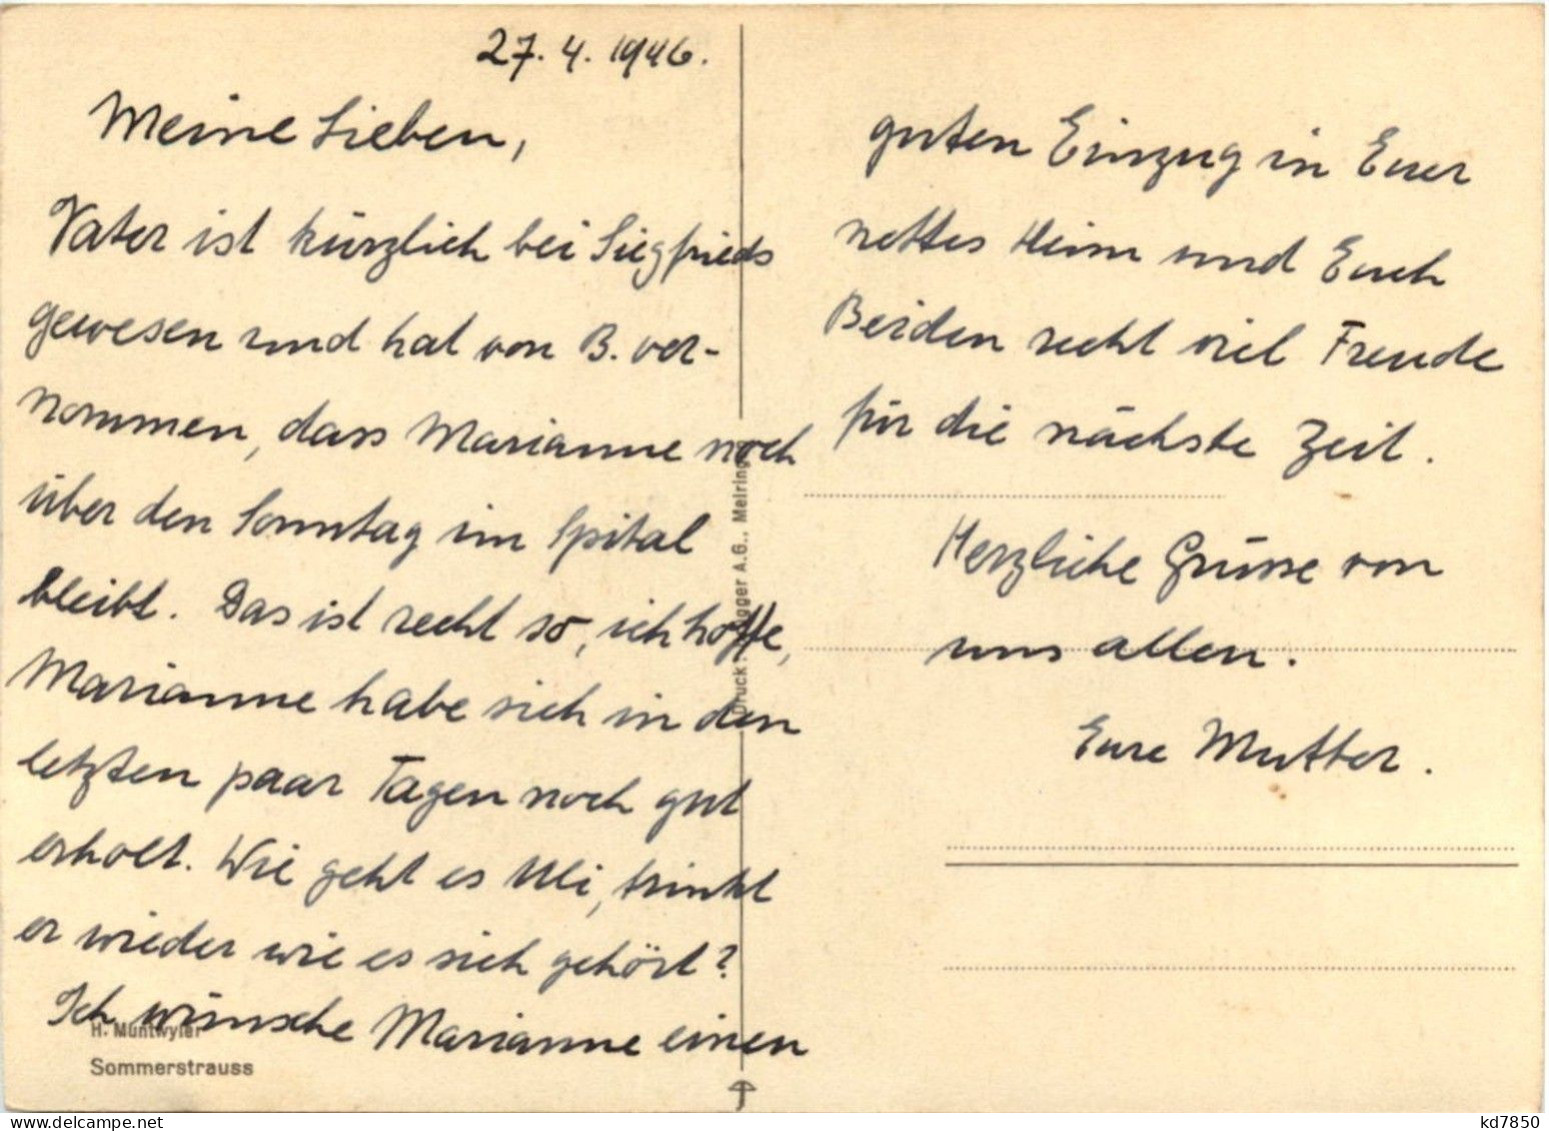 27. 4. 1946.
Meine Lieben,
Vater ist kürzlich bei Siegfrieds
gewesen und hat von B. ver-
nommen, dass Marianne noch
über den Sonntag im Spital
bleibt. Das ist recht so, ich hoffe,
Marianne habe sich in den
letzten paar Tagen noch gut
erholt. Wie geht es Ueli, trinkt
er wieder wie es sich gehört?
Ich wünsche Marianne einen
H. Muntwyler
Sommerstrauss
Druck: gger A.G., Meiring
guten Einzug in Euer
nettes Heim und Euch
Beiden recht viel Freude
für die nächste Zeit.
Herzliche Grüsse von
uns allen.
Eure Mutter.
www.delcampe.net
kd7850